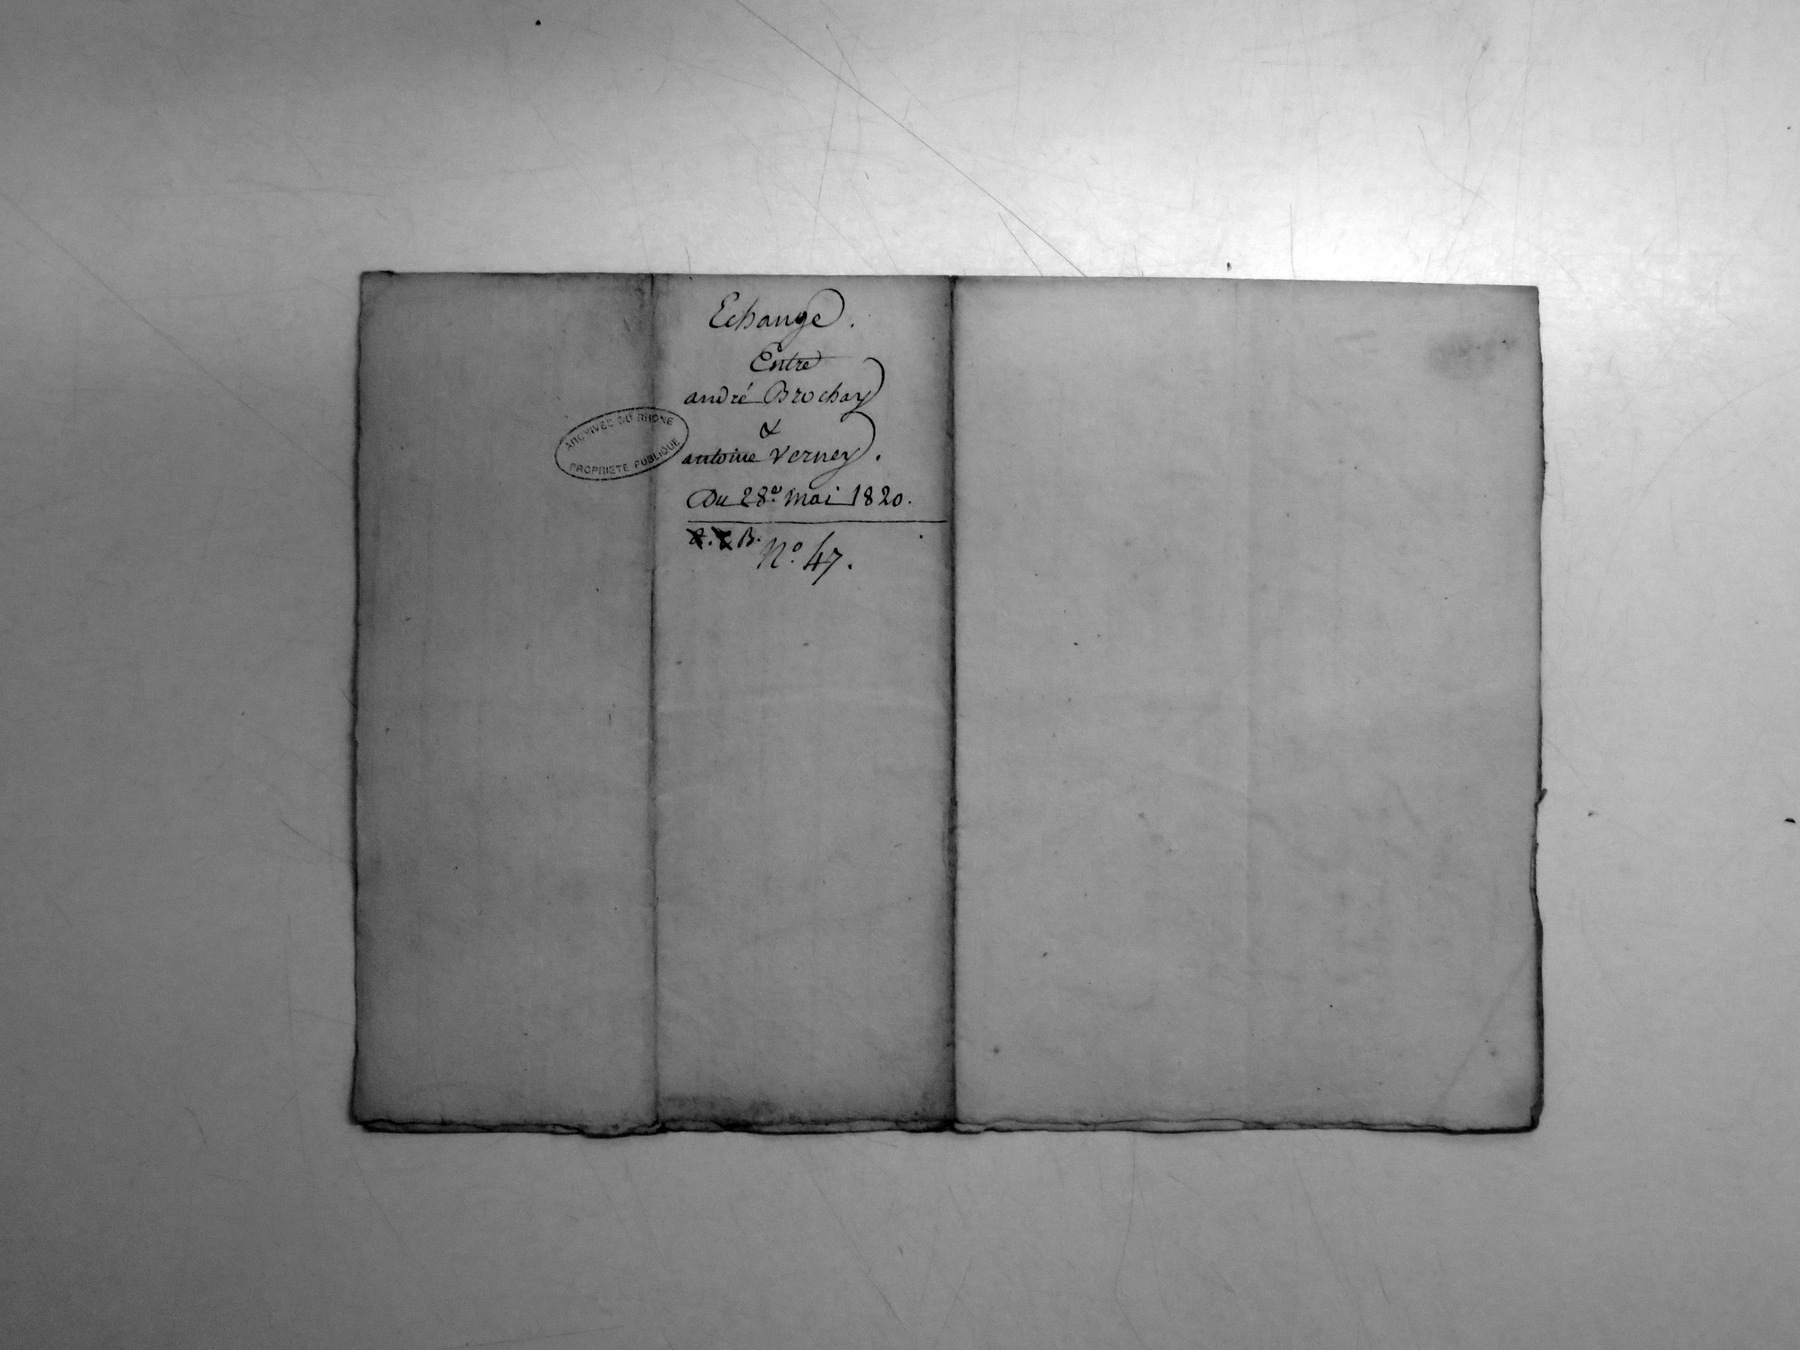 Echange.
Entre
andré Brochay
&
antoine Verney.
Du 28e. mai 1820.
B.
N.o 47.
ARCHIVES DU RHONE
PROPRIETE PUBLIQUE